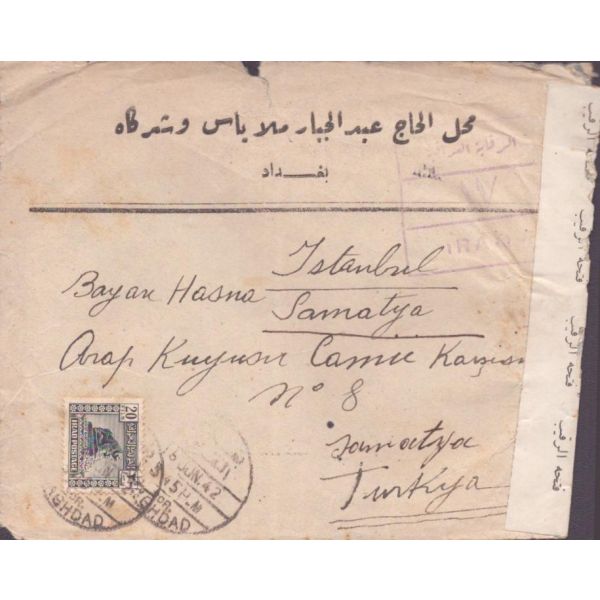 محل الحاج عبد الجبار ملا ياس وشركاه
بغداد
الرقابة
IRAQ
Istanbul
Bayan Hasna Samatya
Arap Kuyusu Camii Karşısı
N° 8
Samatya
Turkya
20
IRAQ POSTAGE
JUN. 42
5 15 PM
BAGHDAD
BAGHDAD
فتحه الرقيب
فتحه الرقيب
فتحه الرقيب
فتحه الرقيب